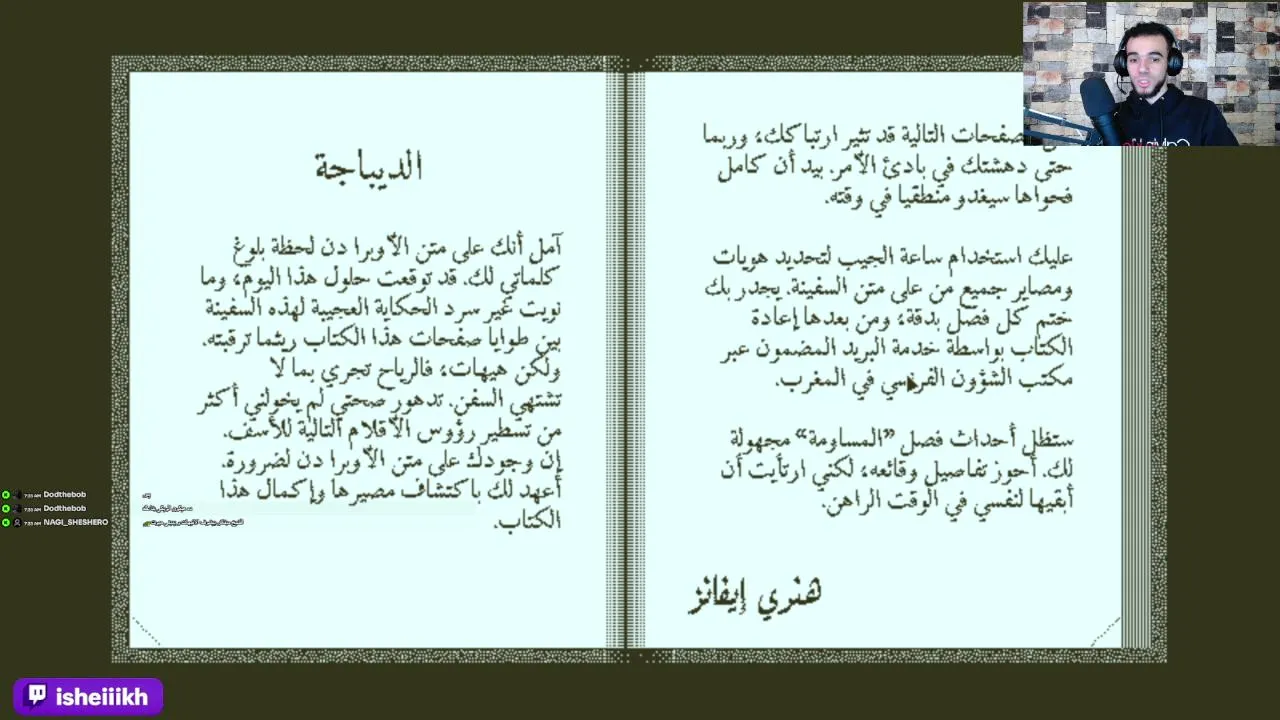 الديباجة
آمل أنك على متن الأوبرا دن لحظة بلوغ
كلماتي لك. قد توقعت حلول هذا اليوم، وما
نويت غير سرد الحكاية العجيبة لهذه السفينة
بين طوايا صفحات هذا الكتاب ريثما ترقبته.
ولكن هيهات، فالرياح تجري بما لا
تشتهي السفن. تدهور صحتي لم يخولني أكثر
من تسطير رؤوس الأقلام التالية للأسف.
إن وجودك على متن الأوبرا دن لضرورة.
أعهد لك باكتشاف مصيرها وإكمال هذا
الكتاب.
صفحات التالية قد تثير ارتباكك، وربما
حتى دهشتك في بادئ الأمر. بيد أن كامل
فحواها سيغدو منطقيا في وقته.
عليك استخدام ساعة الجيب لتحديد هويات
ومصاير جميع من على متن السفينة. يجدر بك
ختم كل فصل بدقة، ومن بعدها إعادة
الكتاب بواسطة خدمة البريد المضمون عبر
مكتب الشؤون الفرنسي في المغرب.
ستظل أحداث فصل «المساومة» مجهولة
لك. أحوز تفاصيل وقائعه، لكني ارتأيت أن
أبقيها لنفسي في الوقت الراهن.
هنري إيفانز
7:23 AM Dodthebob
7:23 AM Dodthebob
7:23 AM NAGI_SHESHERO
isheiiikh